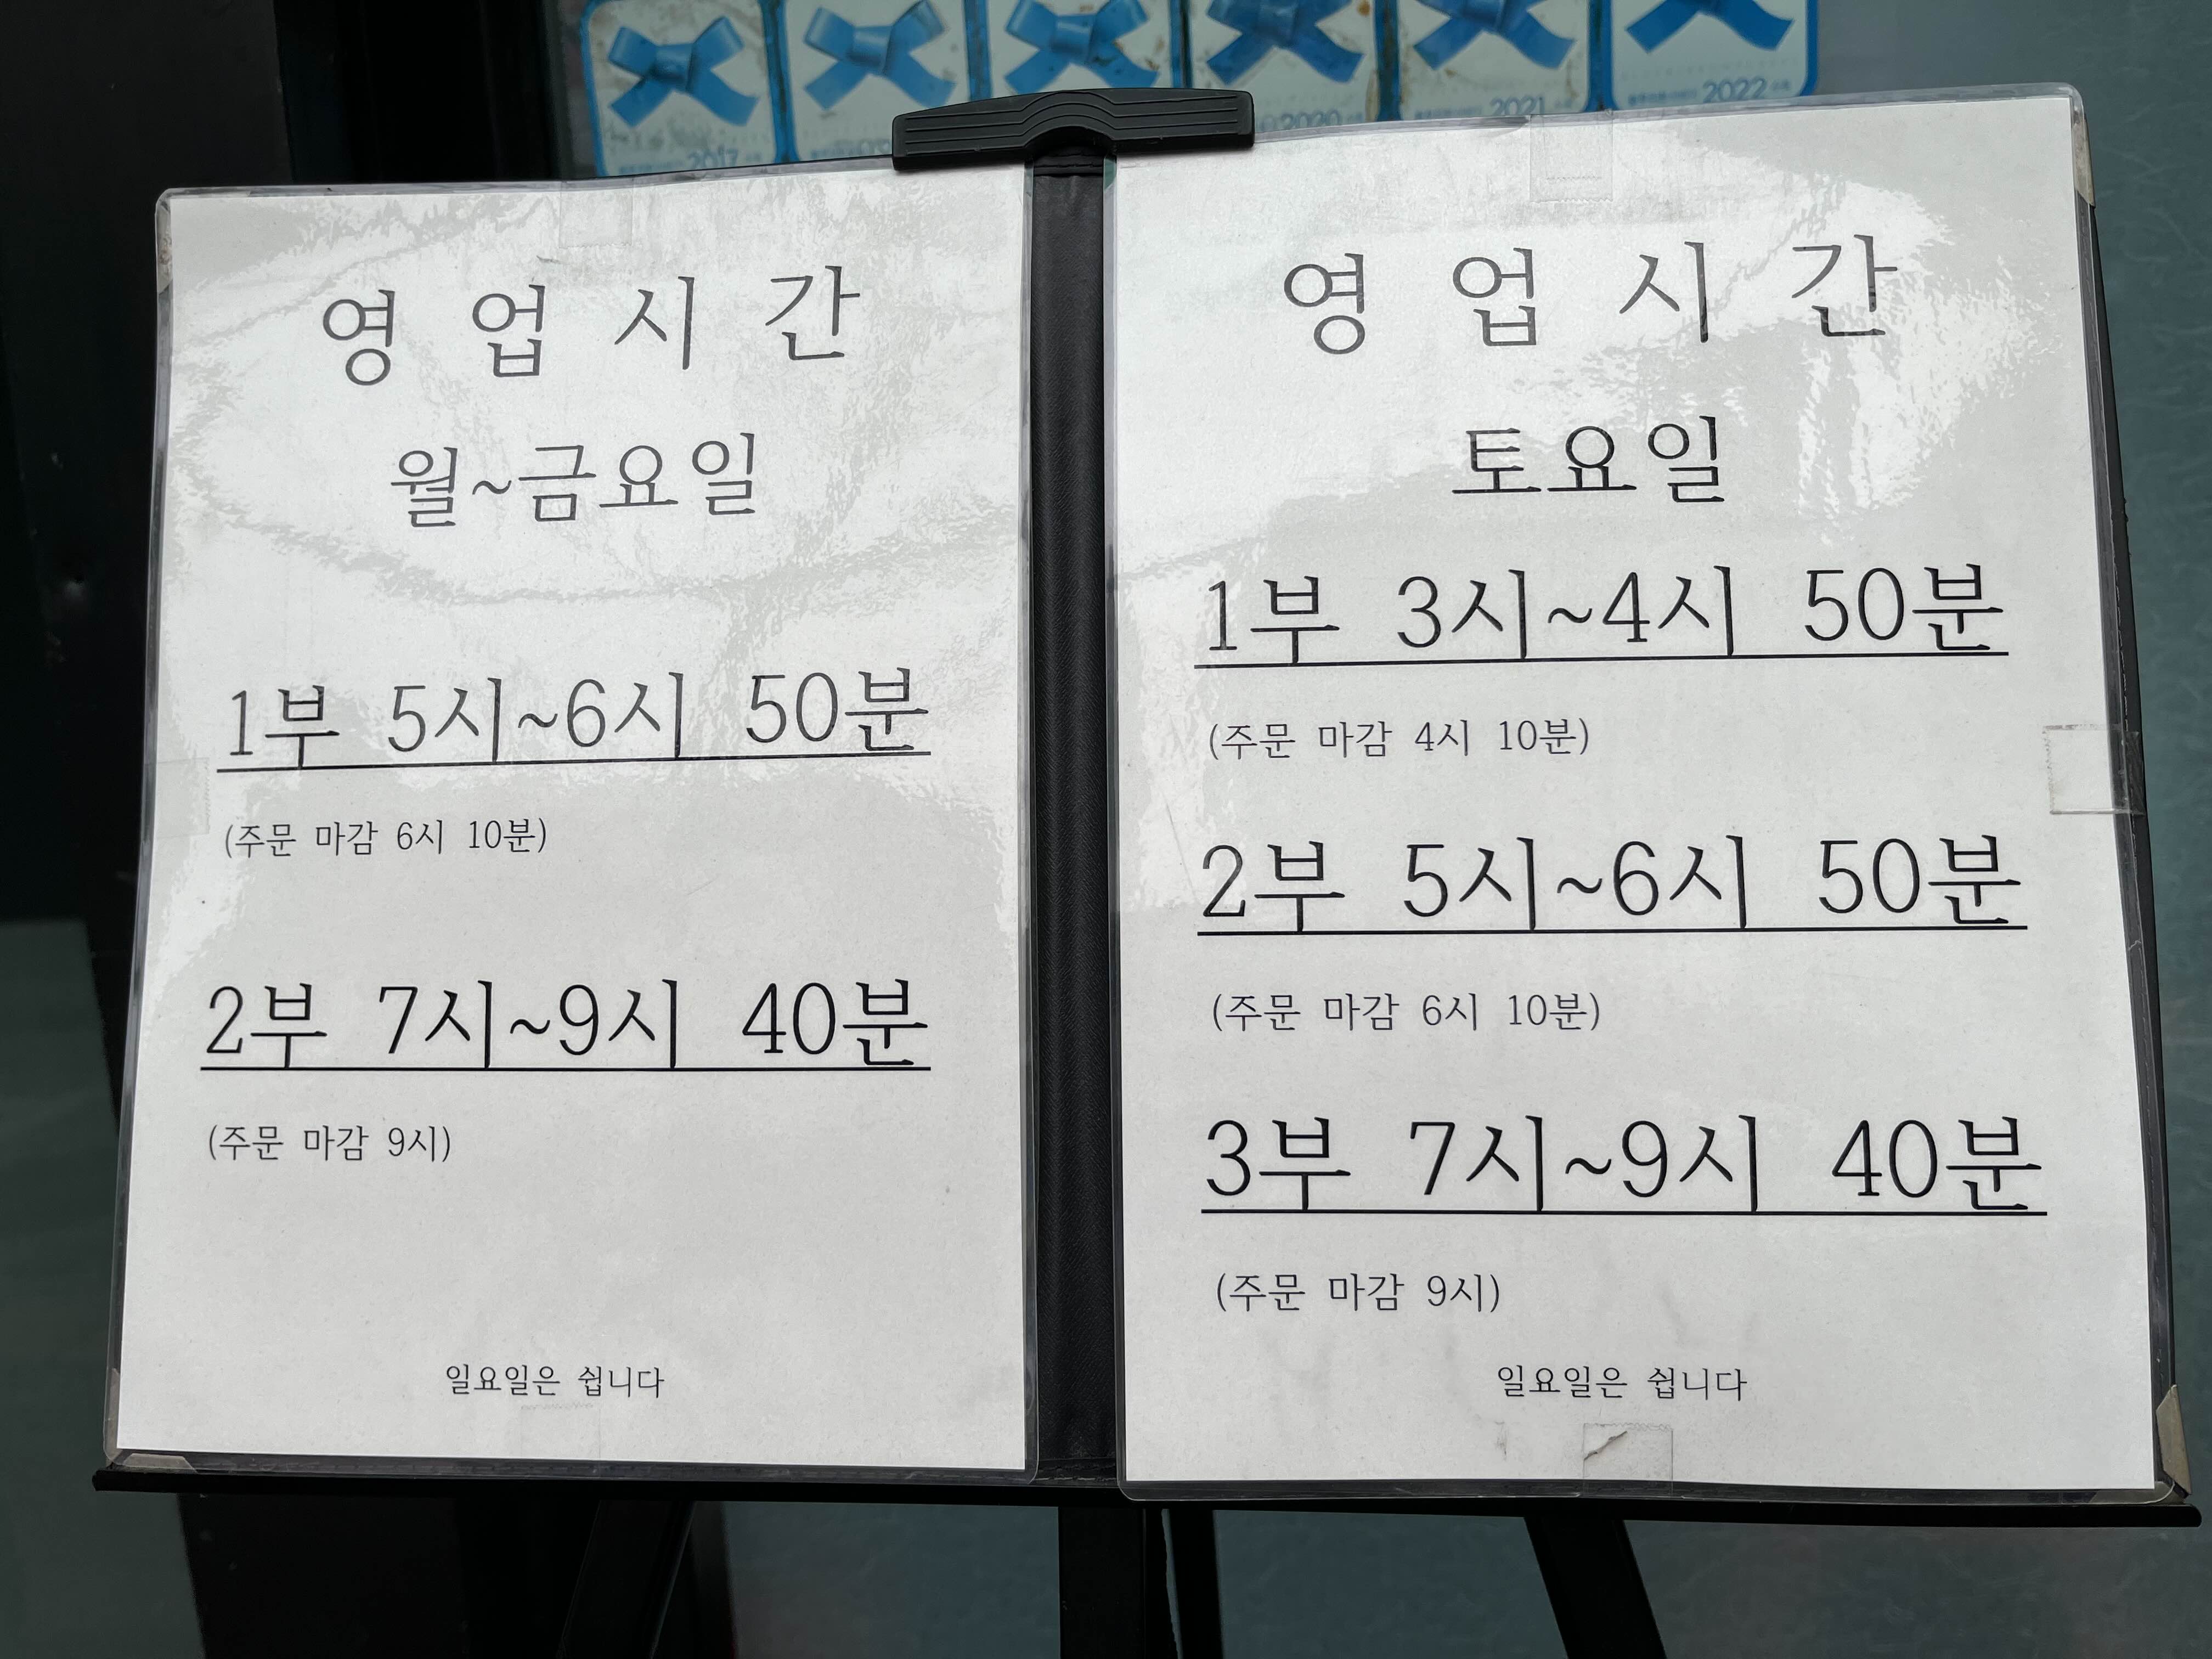 2017
2020
2021
2022
영 업 시 간
월~금요일
1부 5시~6시 50분
(주문 마감 6시 10분)
2부 7시~9시 40분
(주문 마감 9시)
일요일은 쉽니다
영 업 시 간
토요일
1부 3시~4시 50분
(주문 마감 4시 10분)
2부 5시~6시 50분
(주문 마감 6시 10분)
3부 7시~9시 40분
(주문 마감 9시)
일요일은 쉽니다